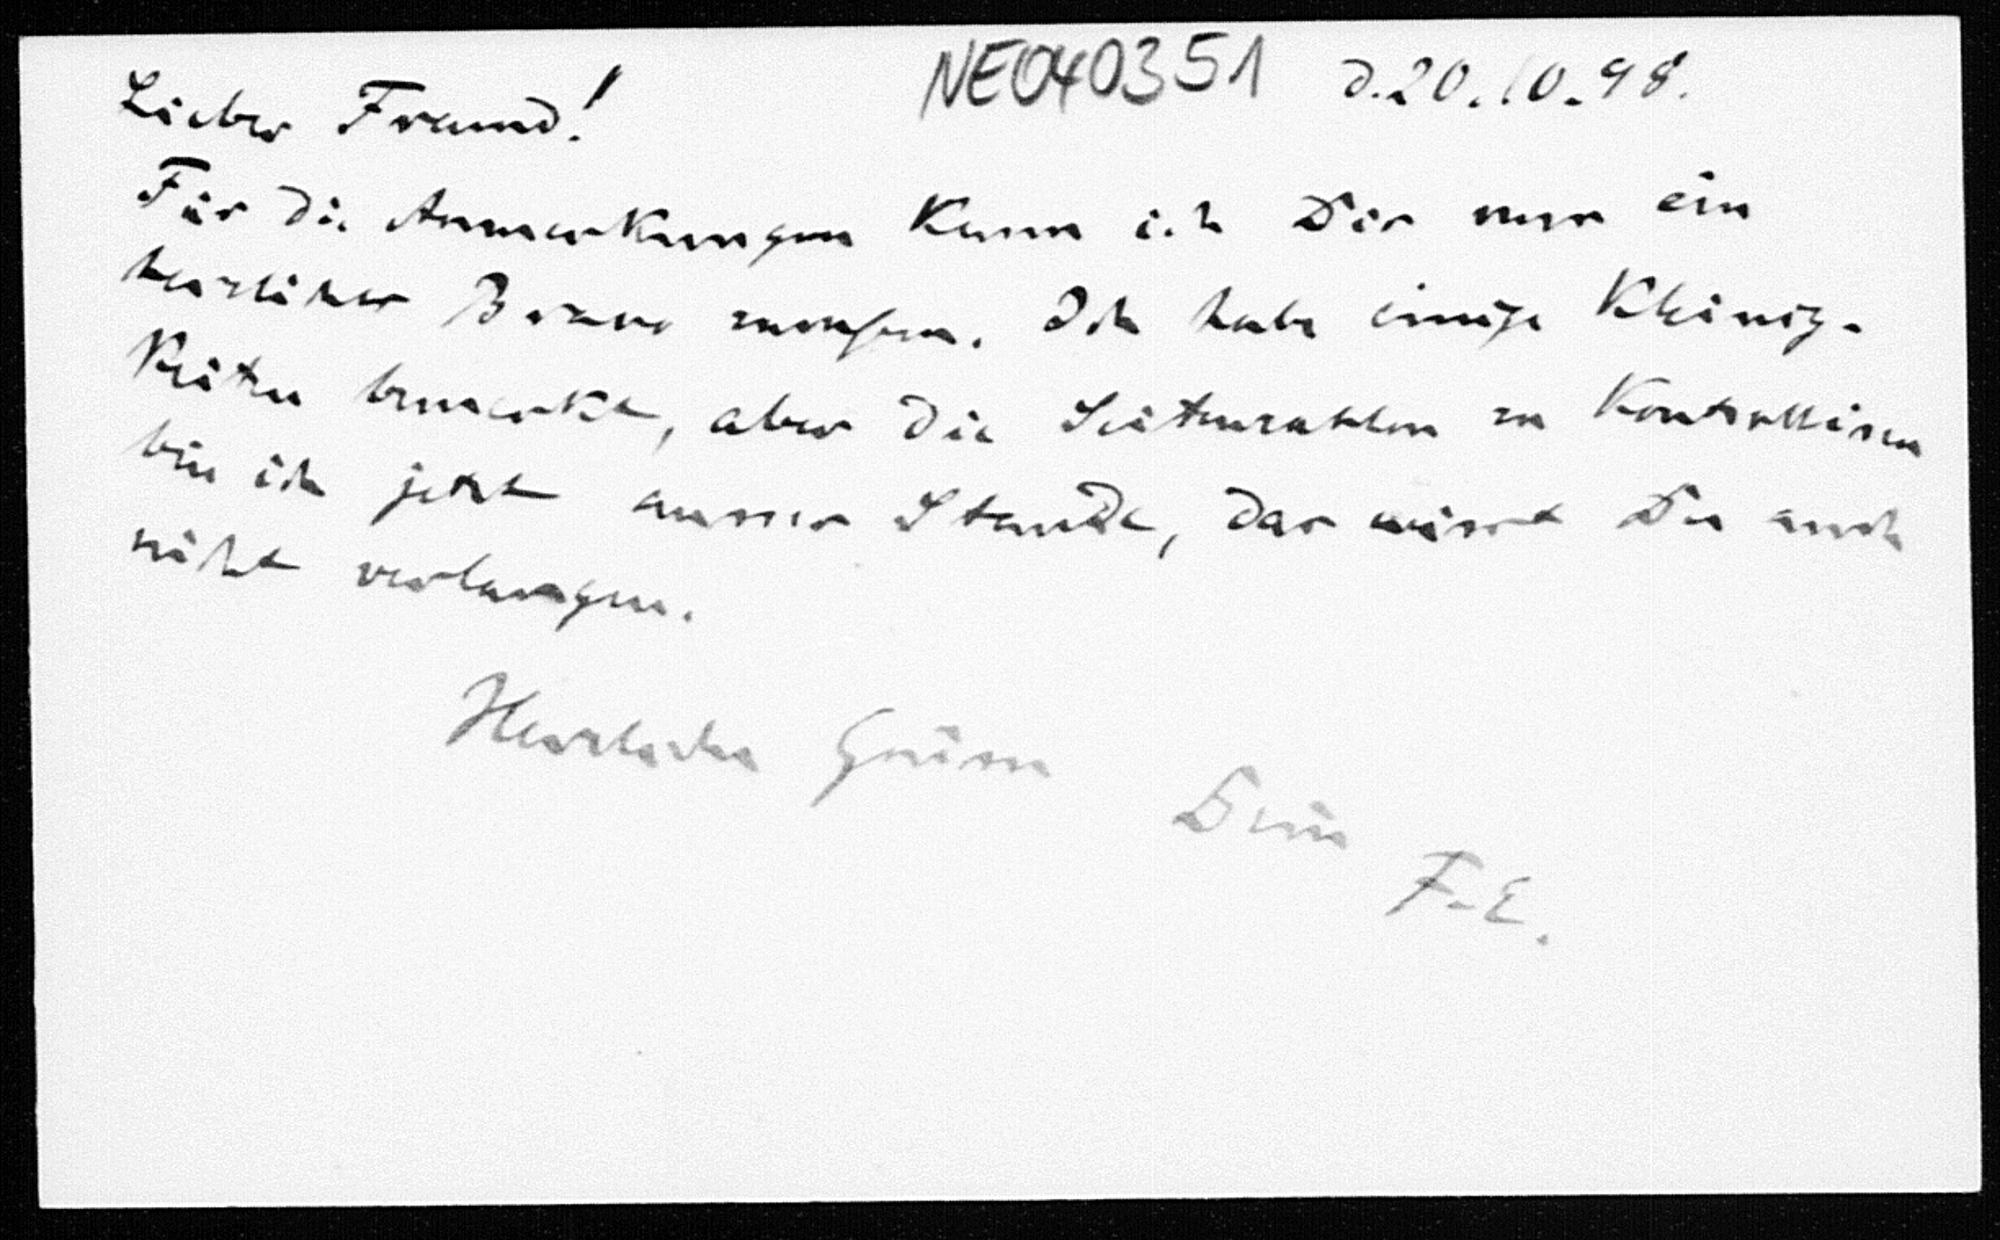 NE040351 d. 20.10.98.
Lieber Freund!
Für die Anmerkungen kann ich Dir nur ein
herzliches Bravo zurufen. Ich habe einige Kleinig-
keiten bemerkt, aber die Seitenzahlen zu kontrollieren
bin ich jetzt ausser Stande, das wirst Du auch
nicht verlangen.
Herzliche Grüsse
Dein
F.E.